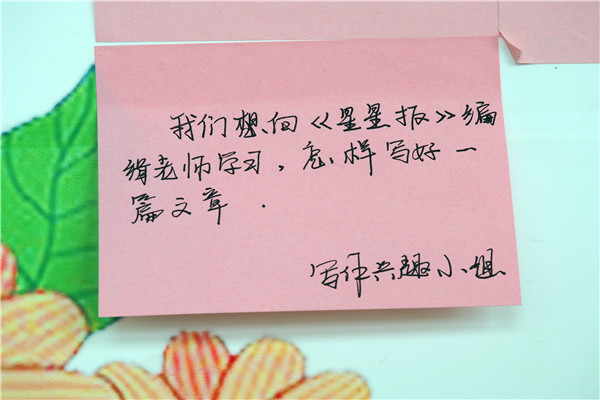 我们想向《星星报》编
辑老师学习，怎样写好一
篇文章．
写作兴趣小组